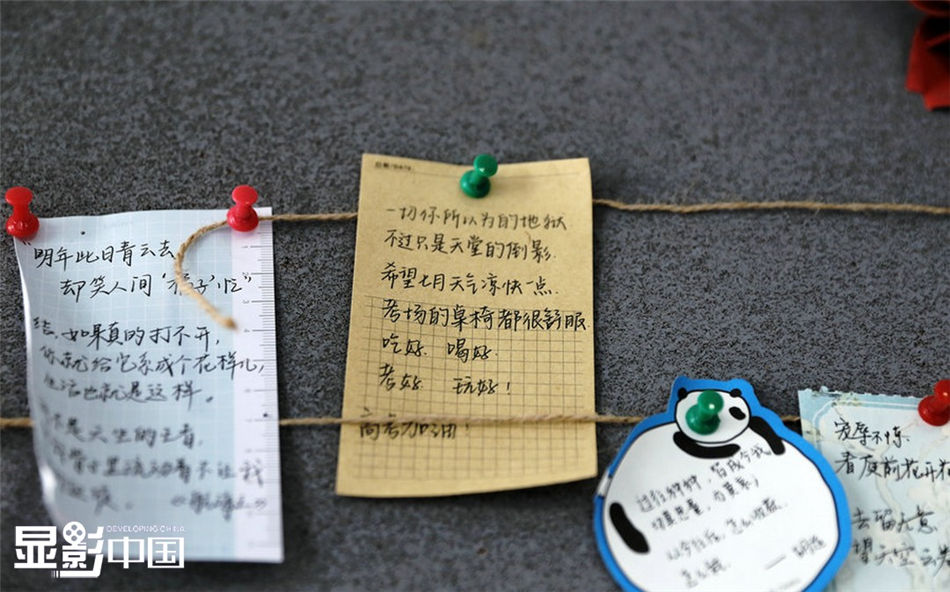 "明年此日青云去,
却笑人间"槐子"忙"
结, 如果真的打不开,
你就给它系成个花样儿,
生活也就是这样。
不是天生的王者,
日期/DATE:
一切你所以为的地狱
不过只是天堂的倒影.
希望七月天气凉快一点.
考场的桌椅都很舒服.
吃好. 喝好.
考好. 玩好!
高考加油!
过往种种,
以今往后, 怎么收获,
怎么栽
——胡适
宠辱不惊
看庭前花开花
去留无意
望天空云
显影中国
DEVELOPING CHINA